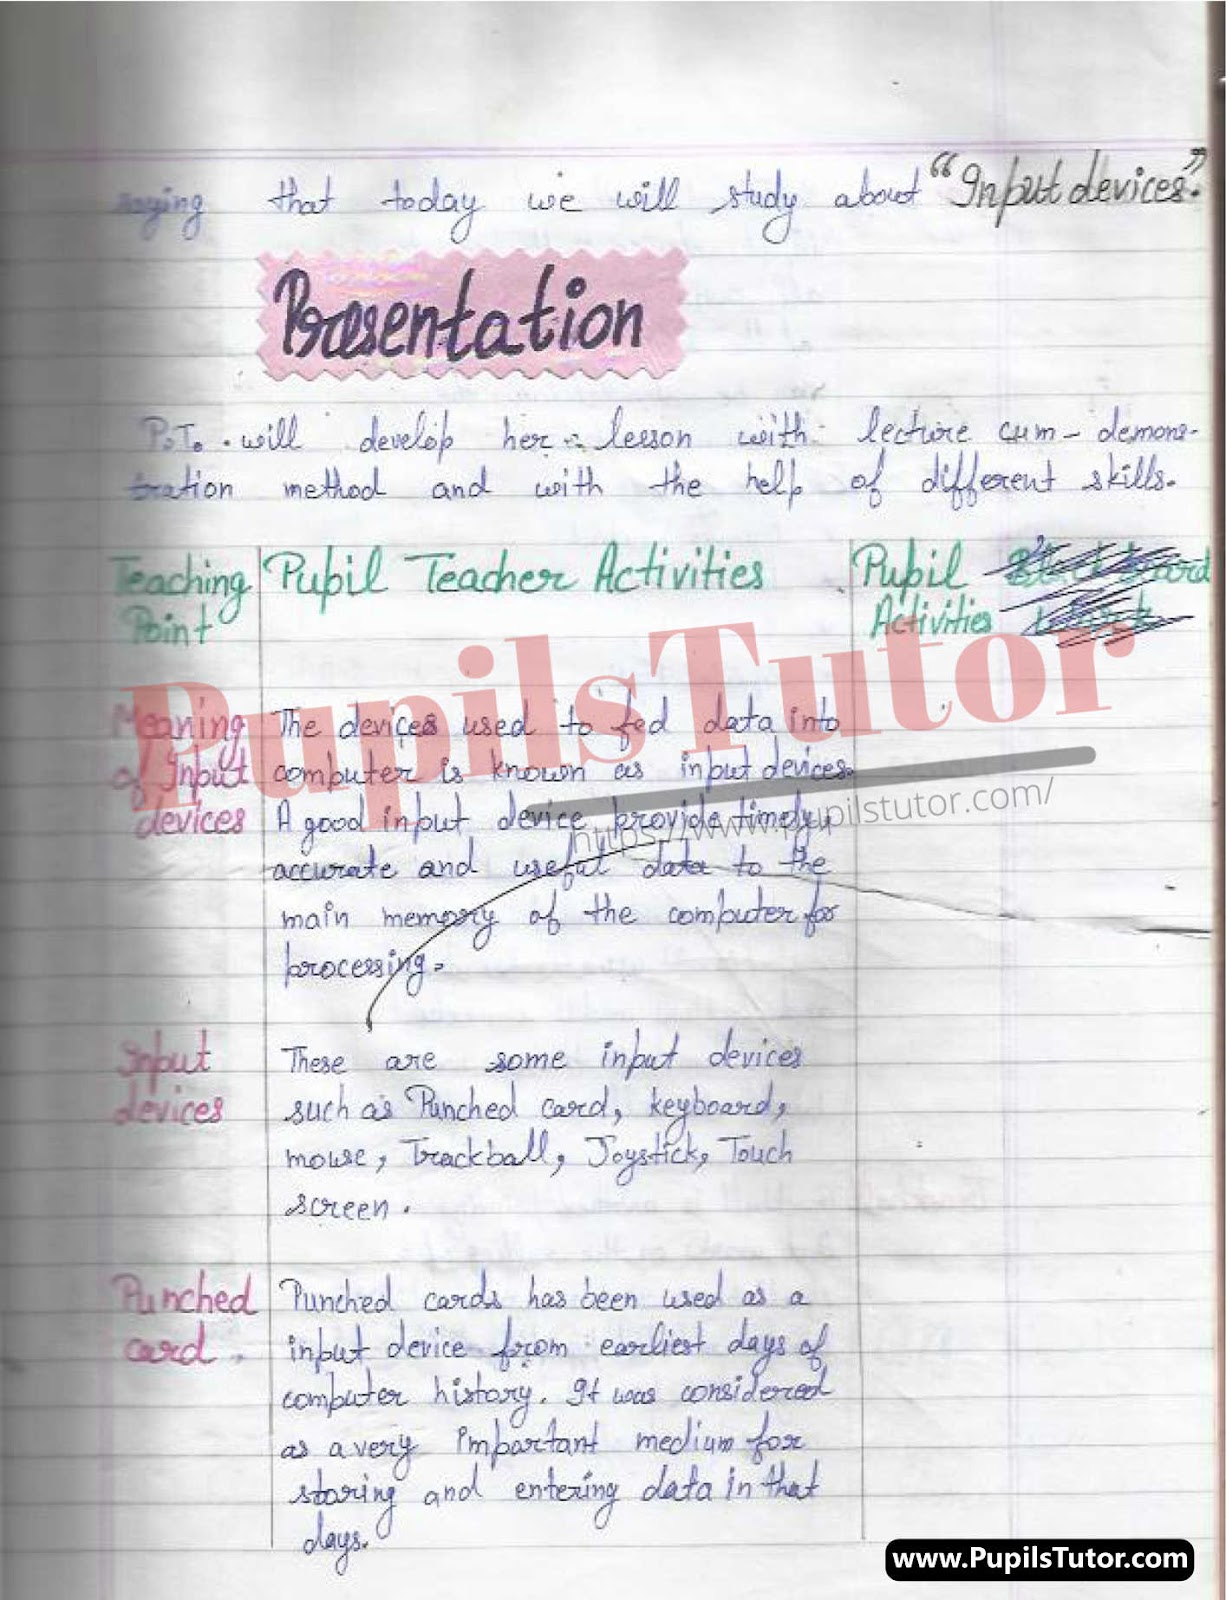 saying that today we will study about "Input devices."
Presentation
P.T. will develop her lesson with lecture cum-demons-
tration method and with the help of different skills.
Teaching Point
Pupil Teacher Activities
Pupil Activities
Meaning of Input devices
The devices used to fed data into
computer is known as input devices.
A good input device provide timely,
accurate and useful data to the
main memory of the computer for
processing.
Input devices
These are some input devices
such as Punched card, keyboard,
mouse, Trackball, Joystick, Touch
screen.
Punched card.
Punched cards has been used as a
input device from earliest days of
computer history. It was considered
as a very Important medium for
storing and entering data in that
days.
PupilsTutor
https://www.pupilstutor.com/
www.PupilsTutor.com